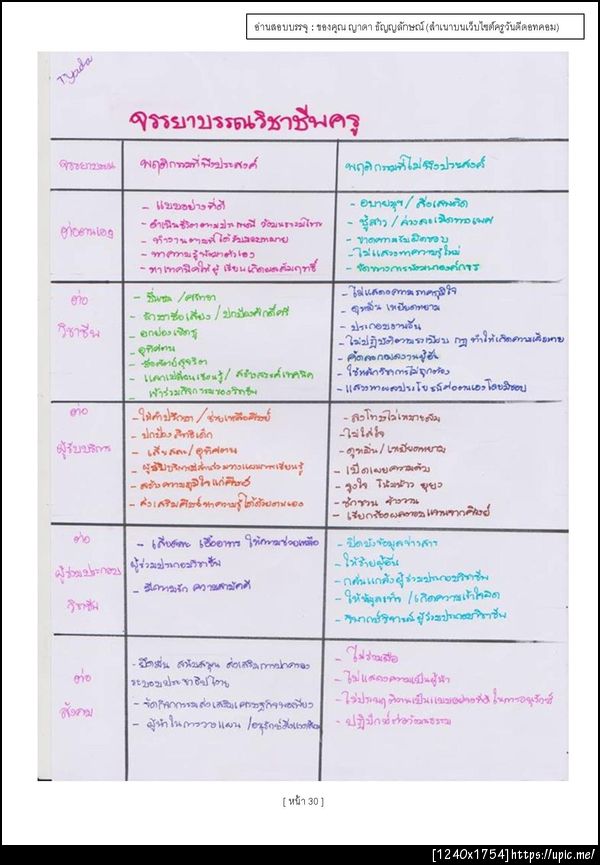 อ่านสอบบรรจุ : ของคุณ ญาดา ธัญญลักษณ์ (สำเนาบนเว็บไซต์ครูวันดีดอทคอม)
จรรยาบรรณวิชาชีพครู
จรรยาบรรณ
พฤติกรรมที่พึงประสงค์
พฤติกรรมที่ไม่พึงประสงค์
ต่อตนเอง
- แบบอย่างที่ดี
- ดำเนินชีวิตตามประเพณี วัฒนธรรมไทย
- ทำงานตามที่ได้รับมอบหมาย
- หาความรู้พัฒนาตัวเอง
- หาเทคนิคให้ผู้เรียนเกิดผลสัมฤทธิ์
- อบายมุข / สิ่งเสพติด
- ชู้สาว / ล่วงละเมิดทางเพศ
- ขาดความรับผิดชอบ
- ไม่แสวงหาความรู้ใหม่
- ขัดขวางการพัฒนาองค์กร
ต่อ
วิชาชีพ
- ชื่นชม / ศรัทธา
- รักษาชื่อเสียง / ปกป้องศักดิ์ศรี
- ยกย่องเชิดชู
- อุทิศตน
- ซื่อสัตย์สุจริต
- แลกเปลี่ยนเรียนรู้ / สร้างสรรค์เทคนิค
- เข้าร่วมกิจกรรมของวิชาชีพ
- ไม่แสดงความภาคภูมิใจ
- ดูหมิ่น เหยียดหยาม
- ประกอบงานอื่น
- ไม่ปฏิบัติตามระเบียบ กฎ ทำให้เกิดความเสียหาย
- คัดลอกผลงานผู้อื่น
- ใช้หลักวิชาการไม่ถูกต้อง
- แสวงหาผลประโยชน์ต่อตนเองโดยมิชอบ
ต่อ
ผู้รับบริการ
- ให้คำปรึกษา / ช่วยเหลือศิษย์
- ปกป้องสิทธิเด็ก
- เสียสละ / อุทิศตน
- ผู้รับบริการมีส่วนร่วมวางแผนการเรียนรู้
- สร้างความภูมิใจแก่ศิษย์
- ส่งเสริมศิษย์หาความรู้ได้ด้วยตนเอง
- ลงโทษไม่เหมาะสม
- ไม่ใส่ใจ
- ดูหมิ่น / เหยียดหยาม
- เปิดเผยความลับ
- จูงใจ โน้มน้าว ยุยง
- ชักชวน
- เรียกร้องผลตอบแทนจากศิษย์
ต่อ
ผู้ร่วมประกอบ
วิชาชีพ
- เสียสละ เอื้ออาทร ให้ความช่วยเหลือ
ผู้ร่วมประกอบวิชาชีพ
- มีความรัก ความสามัคคี
- ปิดบังข้อมูลข่าวสาร
- ให้ร้ายผู้อื่น
- กลั่นแกล้งผู้ร่วมประกอบวิชาชีพ
- / เกิดความเข้าใจผิด
- วิพากษ์วิจารณ์ผู้ร่วมประกอบวิชาชีพ
ต่อ
สังคม
- ยึดมั่น สนับสนุน ส่งเสริมการปกครอง
ระบอบประชาธิปไตย
- จัดกิจกรรมส่งเสริมเศรษฐกิจพอเพียง
- ผู้นำในการวางแผน / อนุรักษ์สิ่งแวดล้อม
- ไม่ร่วมมือ
- ไม่แสดงความเป็นผู้นำ
- ไม่ประพฤติตนเป็นแบบอย่างที่ดีในการอนุรักษ์
- ปฏิปักษ์ต่อวัฒนธรรม
[ หน้า 30 ]
[1240x1754]https://upic.me/